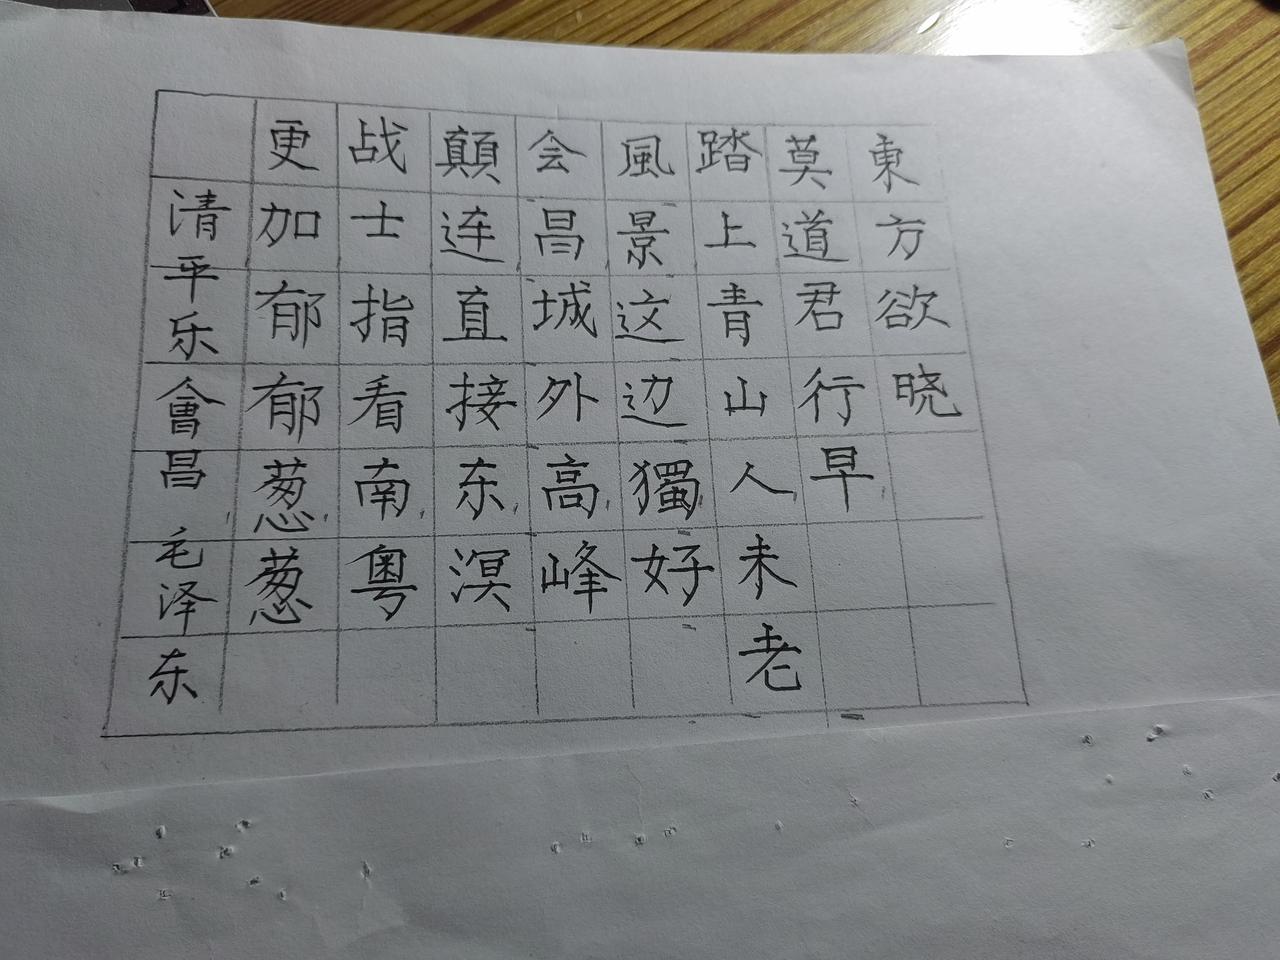 東方欲晓
莫道君行早,
踏上青山人未老
風景这边獨好
会昌城外高峰
顛连直接东溟
战士指看南粤
更加郁郁葱葱
清平乐會昌 毛泽东